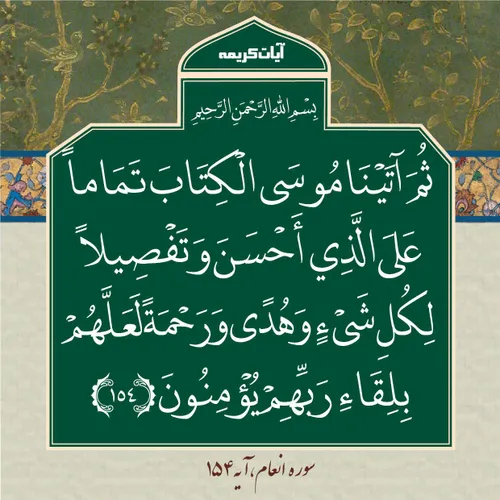 آیات کریمه
بِسْمِ اللهِ الرَّحْمَنِ الرَّحِیمِ
ثُمَّ آتَیْنَا مُوسَى الْكِتَابَ تَمَاماً
عَلَى الَّذِي أَحْسَنَ وَتَفْصِیلاً
لِكُلِّ شَیْءٍ وَهُدًى وَرَحْمَةً لَعَلَّهُمْ
بِلِقَاءِ رَبِّهِمْ یُؤْمِنُونَ ﴿١٥٤﴾
سوره انعام، آیه ۱۵۴